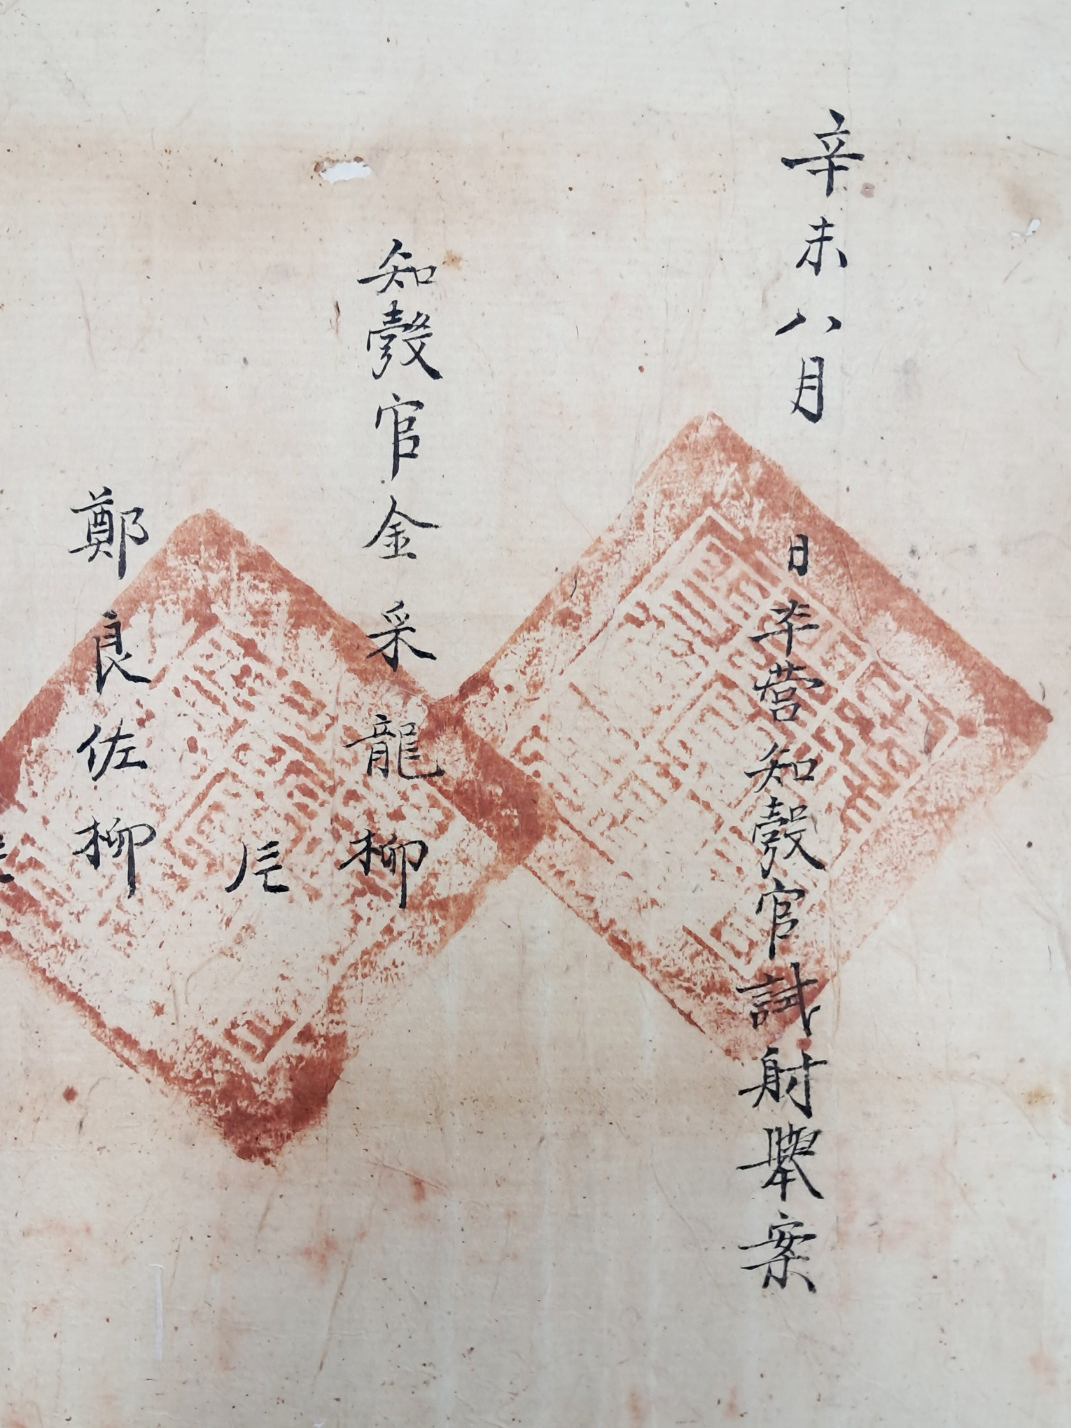 辛未八月 日本營知彀官試射擧案
知彀官金采龍柳
鄭良佐柳